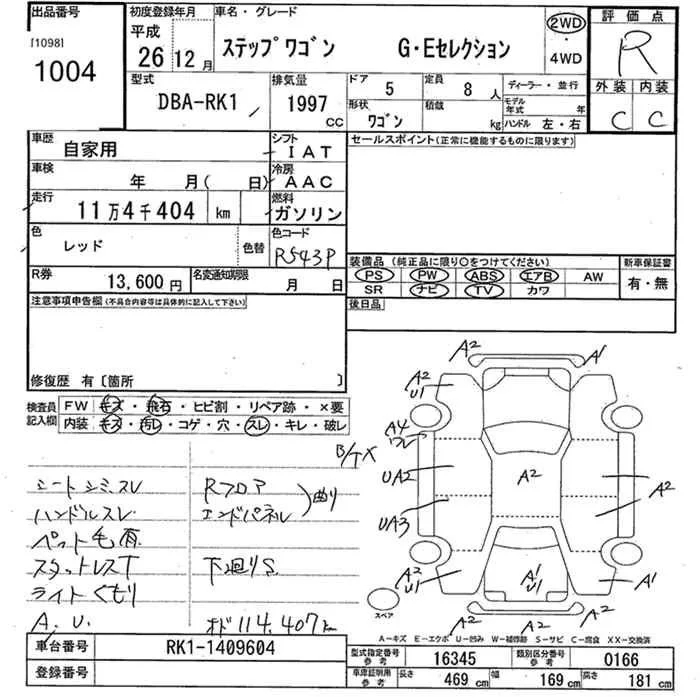 出品番号
[1098]
1004
初度登録年月
平成
26年 12月
車名・グレード
ステップワゴン G・Eセレクション
2WD
・
4WD
評価点
R
外装 内装
C C
型式
DBA-RK1
排気量
1997
CC
ドア
5
形状
ワゴン
定員
8人
積載
kg
ディーラー・並行
モデル年式 年
ハンドル 左・右
車歴
自家用
シフト
IAT
車検
年 月( 日)
冷房
AAC
走行
11万4千404 km
燃料
ガソリン
色
レッド
色替
色コード
R543P
R券
13,600円
名変通知期限
月 日
セールスポイント(正常に機能するものに限ります)
装備品 (純正品に限り○をつけてください)
PS PW ABS エアB AW
SR ナビ TV カワ
新車保証書
有・無
後日品
注意事項申告欄(不具合内容等は具体的に記入して下さい)
修復歴 有〔箇所 〕
検査員記入欄
FW キズ・飛石・ヒビ割・リペア跡・×要
内装 キズ・汚レ・コゲ・穴・スレ・キレ・破レ
シートシミ、スレ
ハンドルスレ
ペット毛有
スタットレスT
ライトくもり
A.U.
Rフロア
エンドパネル
曲り
下廻りS
オド114,407km
A2
A1
A2
U1
A4
ワレ
UA2
UA3
A2
A2
A2
A2
U1
A1
U1
A1
A2
A2
スペア
A-キズ E-エクボ U-凹み W-補修跡 S-サビ C-腐食 XX-交換済
車台番号
RK1-1409604
登録番号
型式指定番号
参考
16345
類別区分番号
参考
0166
車庫証明用
参考
長さ
469 cm
幅
169 cm
高さ
181 cm